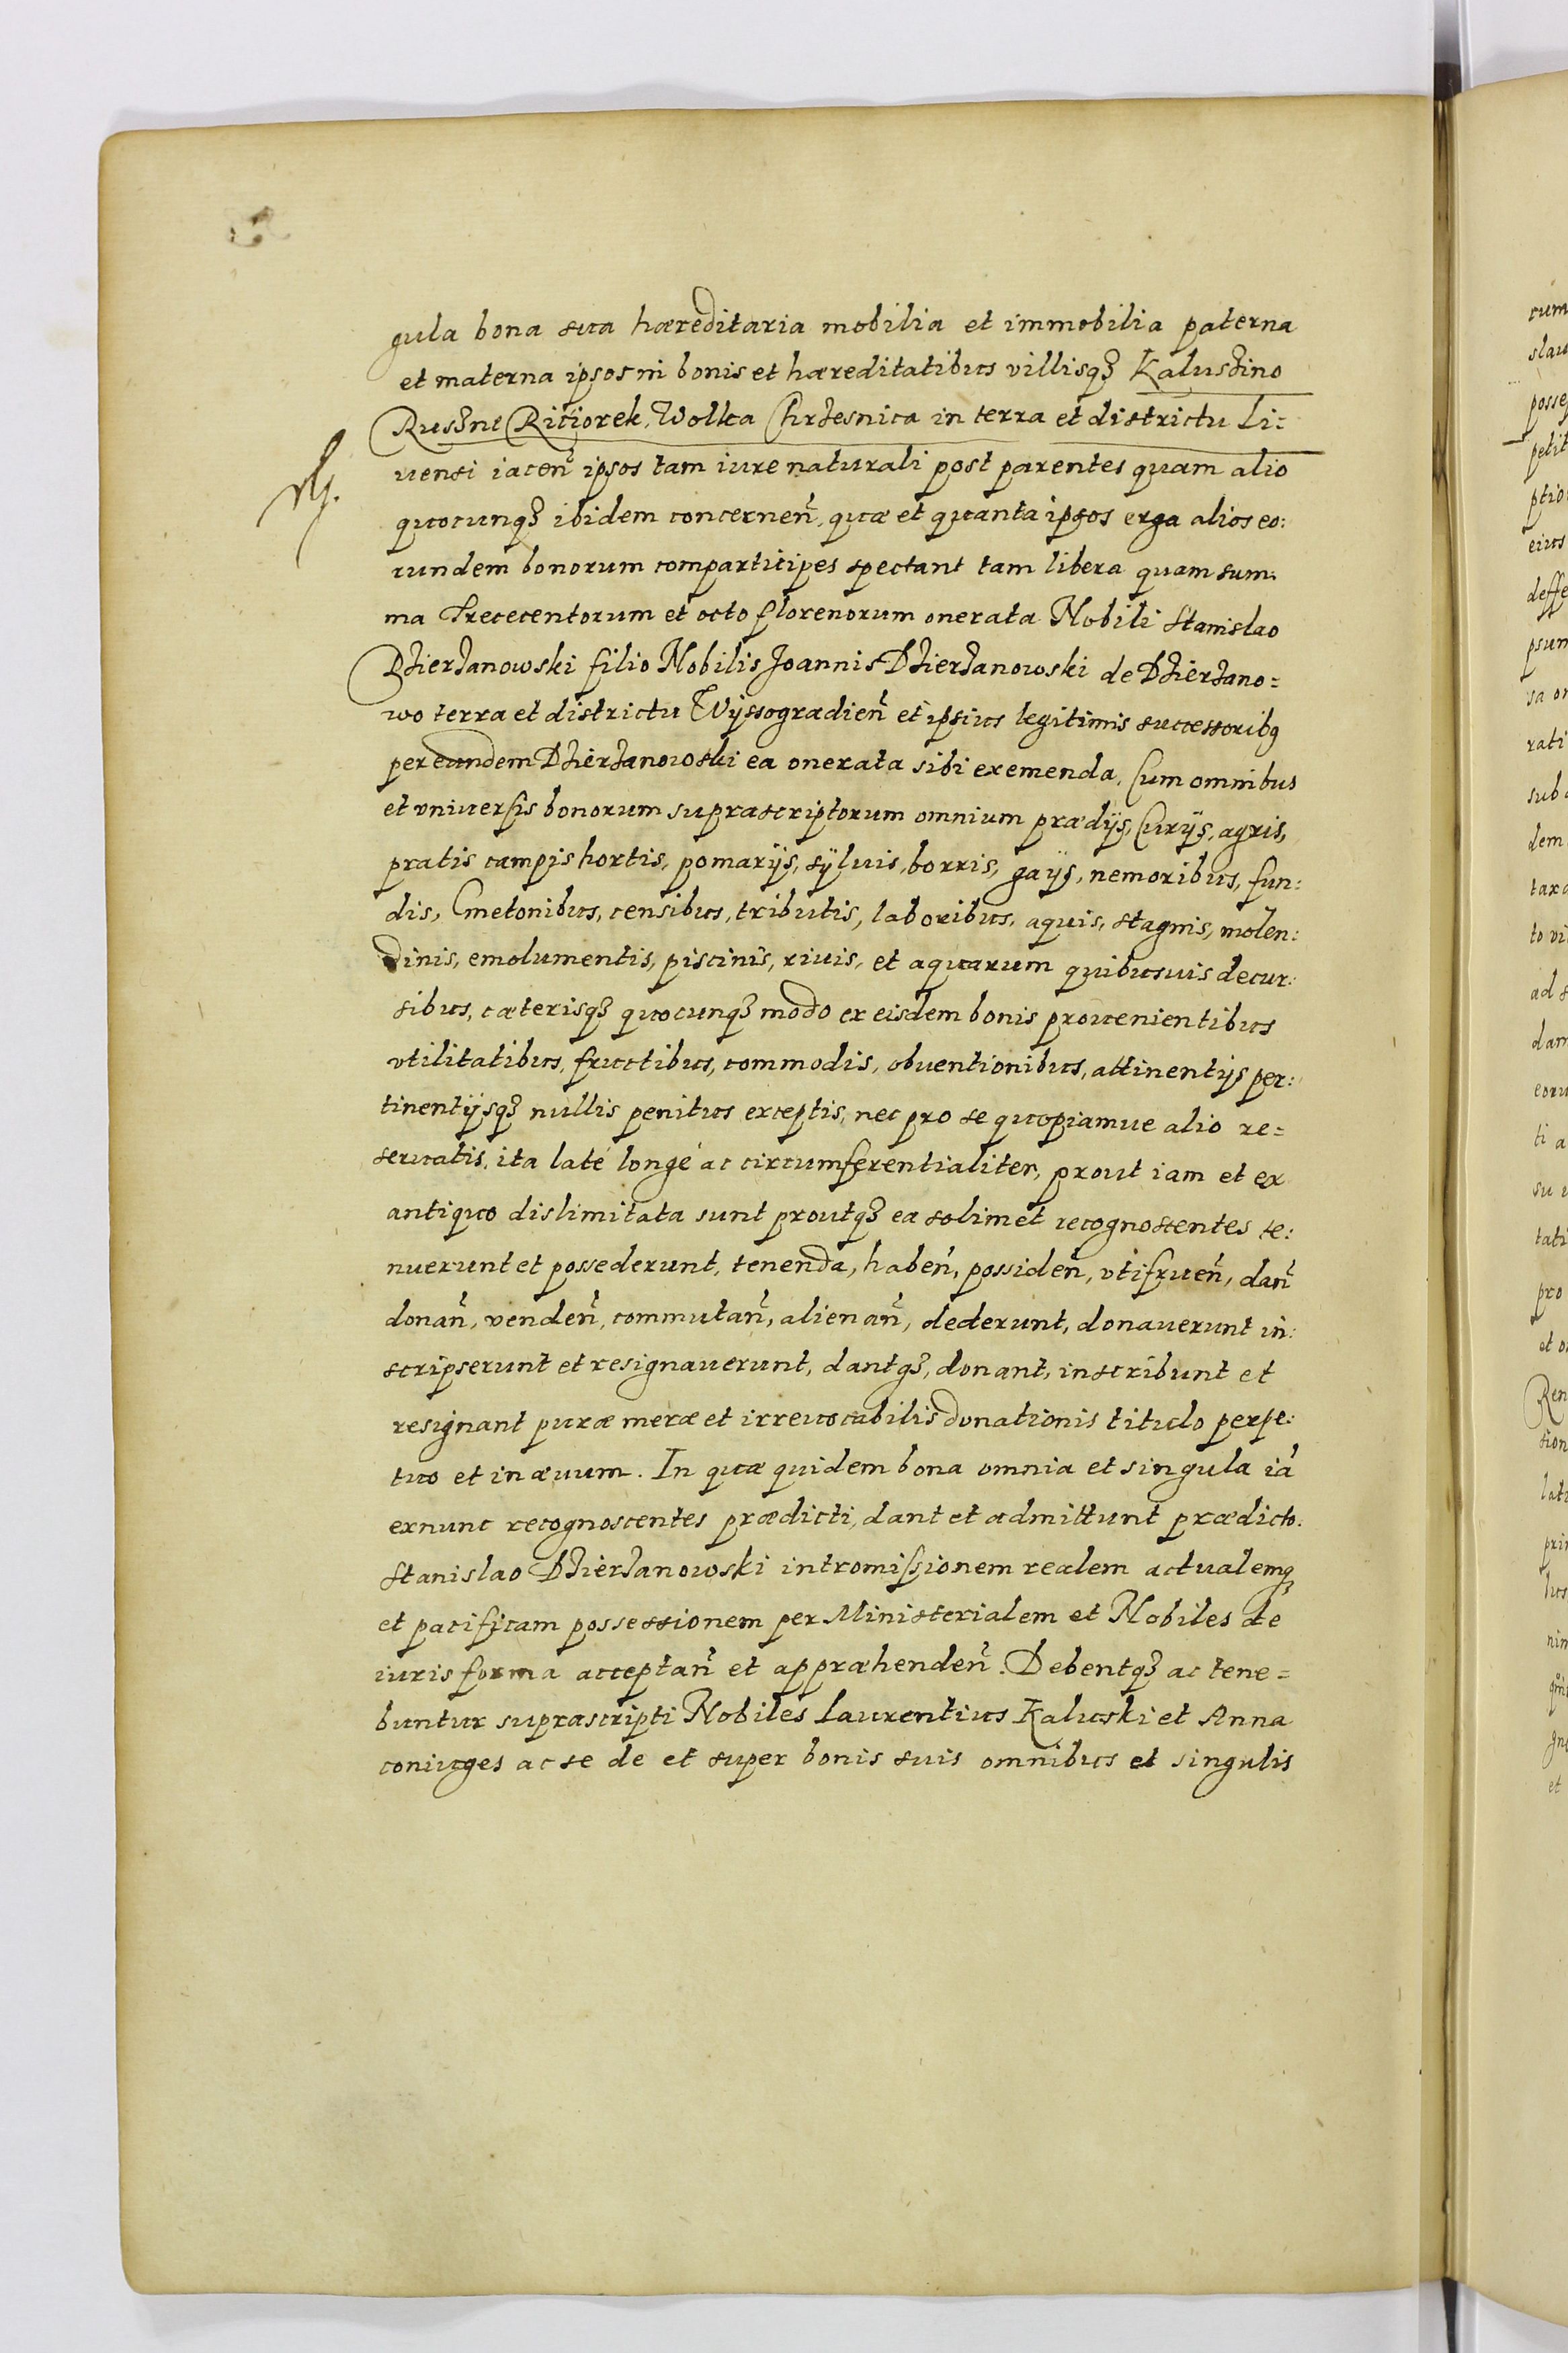 gula bona sua hæreditaria mobilia et immobilia paterna
et materna ipsos in bonis et hæreditatibus villisqꝫ Kaluszino
Rycziorek, Wolka Chrzesnica in terra et districtu Li:
uensi iaceñ ipsos tam iure naturali post parentes quam alio
quocunqꝫ ibidem concerneñ, quæ et quanta ipsos erga alios eo:
rundem bonorum comparticipes spectant tam libera quam sum:
ma Trecentorum et octo florenorum onerata Nobili Stanislao
Dzierzanowski filio Nobilis Joannis Dzierzanowski de Dzierzano=
wo terra et districtu Wyssogradieñ et ipsius legitimis successoribꝰ
per eundem Dzierzanowski ea onerata sibi exemenda, Cum omnibus
et vniversis bonorum suprascriptorum omnium prædijs, Curijs, agris,
pratis campis hortis, pomarijs, sÿluis, borris, gaijs, nemoribus, fun:
dis, Cmetonibus, censibus, tributis, laboribus, aquis, stagnis, molen:
dinis, emolumentis, piscinis, riuis, et aquarum quibusuis decur:
sibus, cæterisqꝫ quocunqꝫ modo ex eisdem bonis prouenientibus
vtilitatibus, fructibus, commodis, obuentionibus, attinentijs per:
tinentijsqꝫ nullis penitus exceptis, nec pro se quopiamue alio re=
seruatis, ita laté longé ac circumferentialiter, prout iam et ex
antiquo dislimitata sunt proutqꝫ ea solimet recognoscentes te:
nuerunt et possederunt, tenenda, habeñ, possideñ, vtifrueñ, dañ
donañ, vendeñ, commutañ, alienañ, dederunt, donauerunt in:
scripserunt et resignauerunt, dantqꝫ, donant, inscribunt et
resignant puræ meræ et irreuocabilis donationis titulo perpe:
tuo et in æuum. In quæ quidem bona omnia et singula iã
exnunc recognoscentes prædicti, dant et admittunt prædicto.
Stanislao Dzierzanowski intromissionem realem actualemqꝫ
et pacificam possessionem per Ministerialem et Nobiles de
iuris forma acceptañ et appræhendeñ. Debentqꝫ ac tene=
buntur suprascripti Nobiles Laurentius Kaluski et Anna
coniuges ac se de et super bonis suis omnibus et singulis